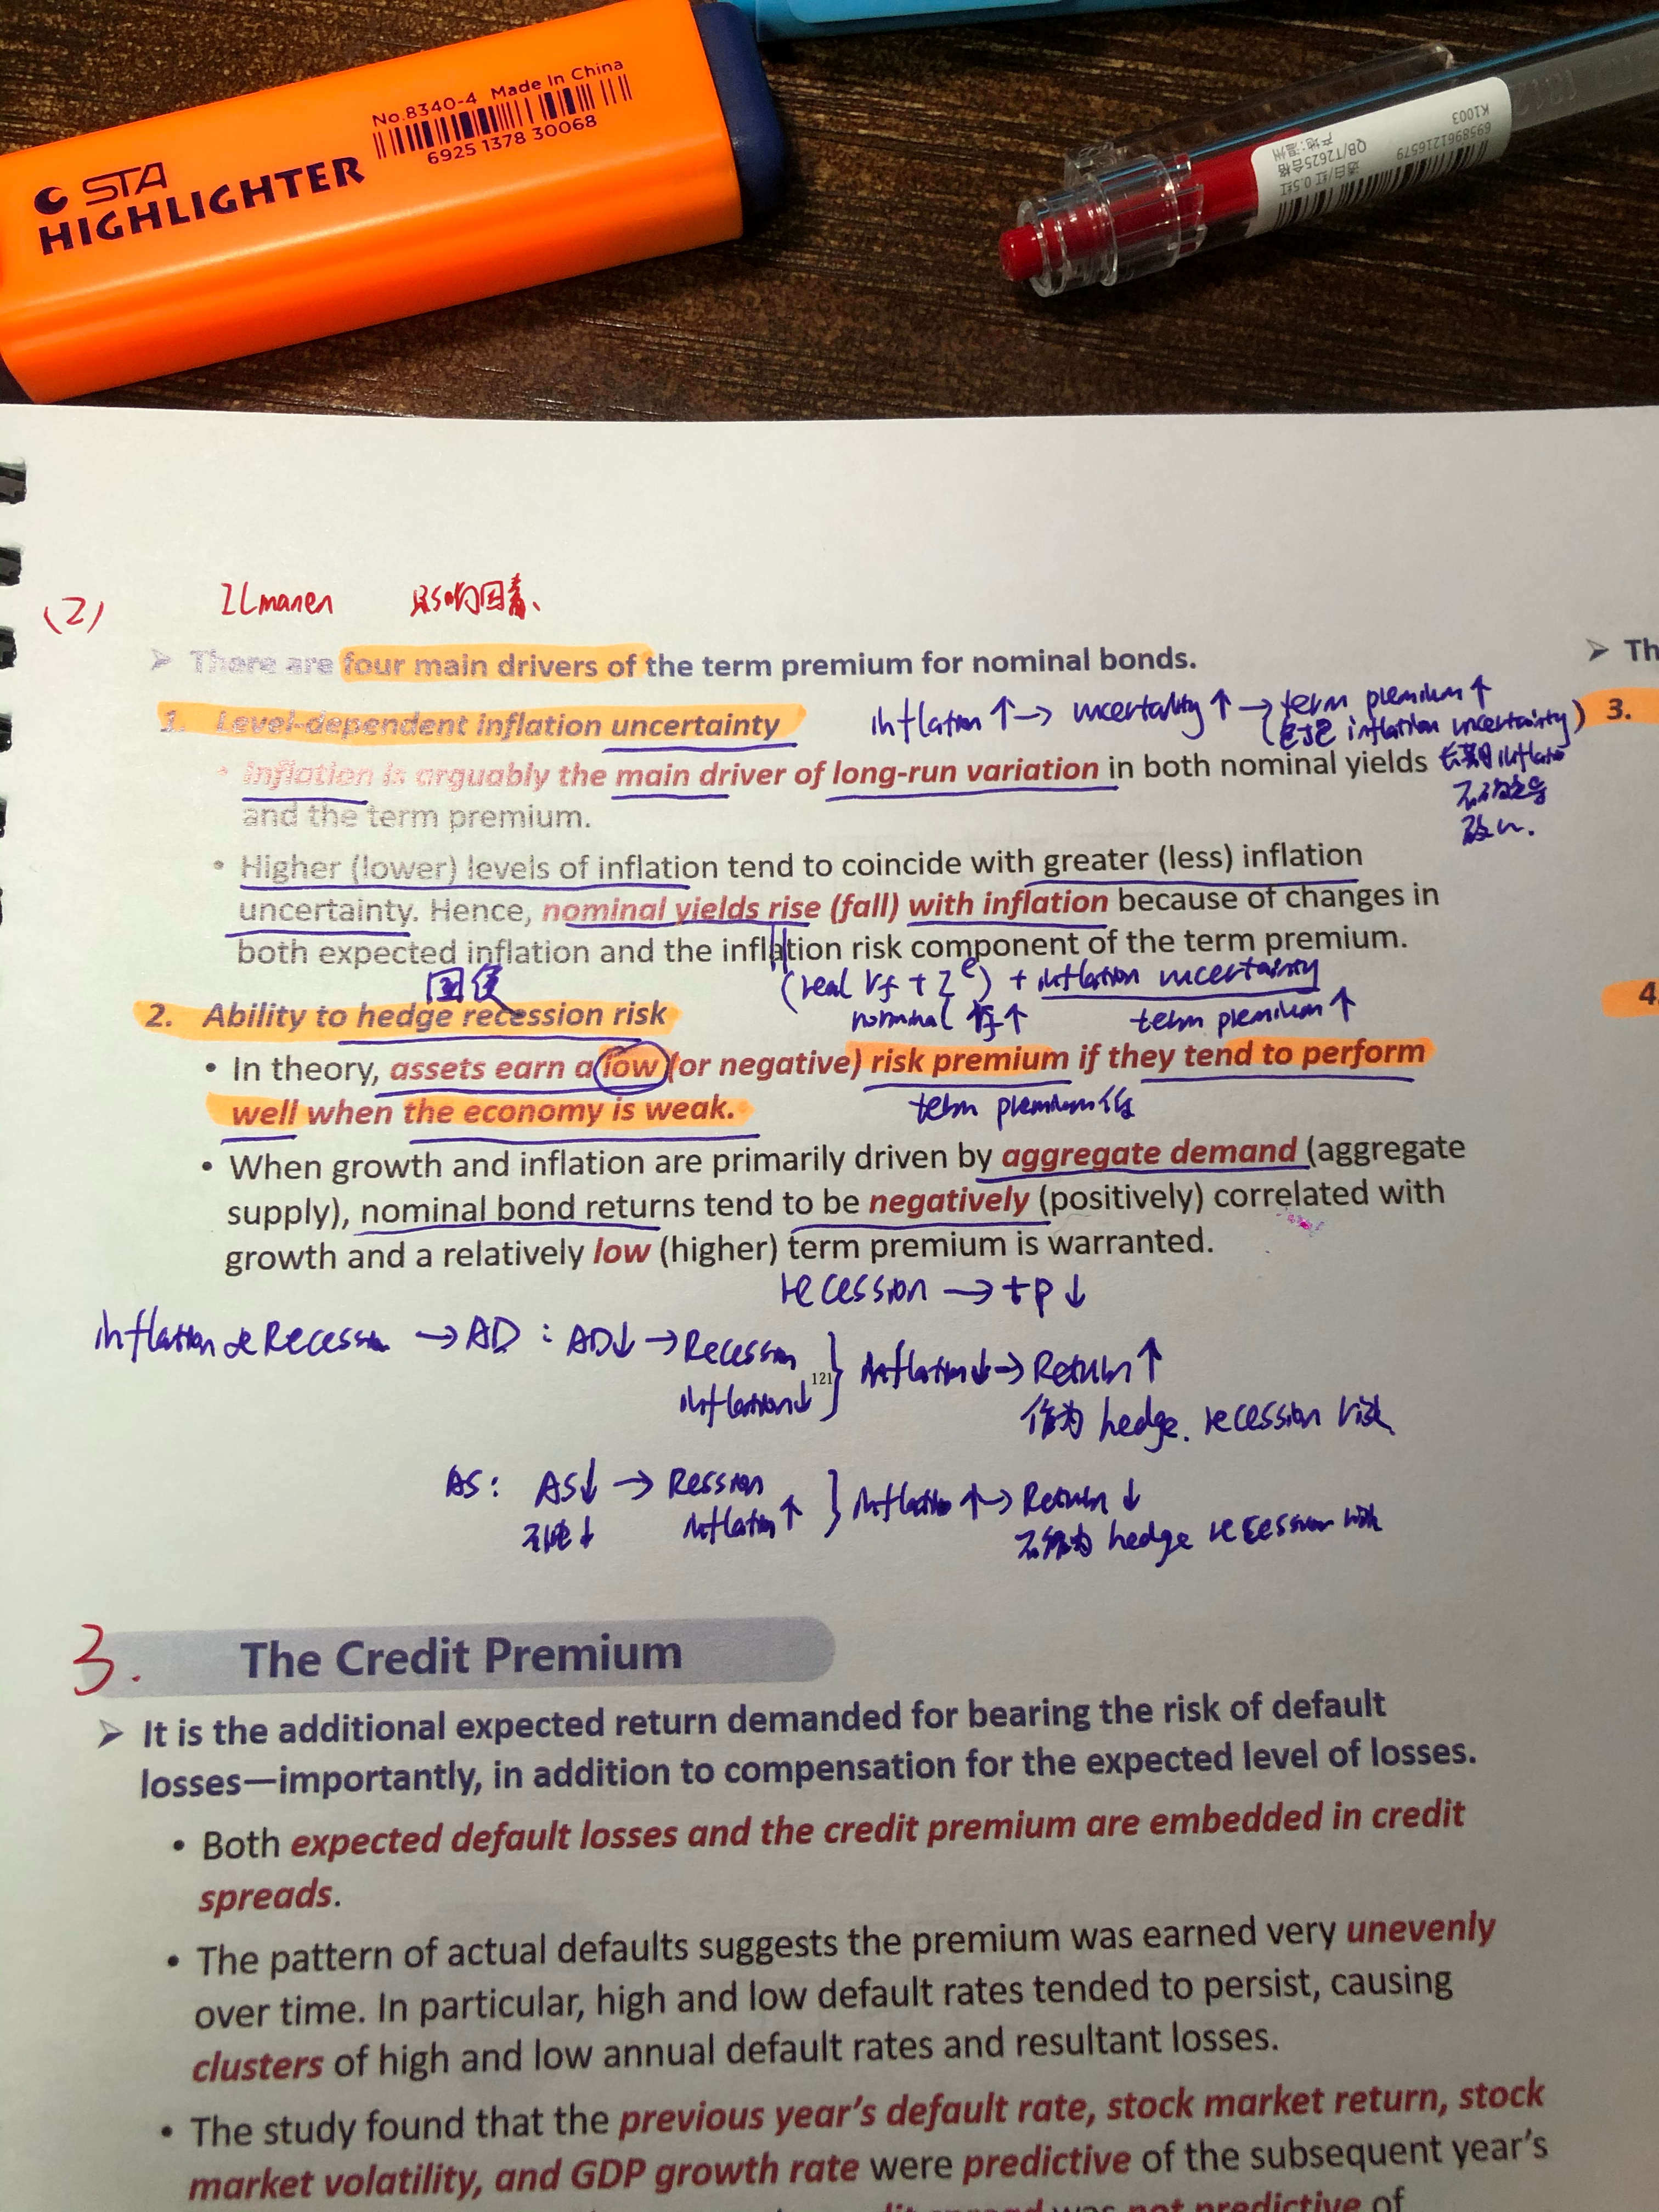 No.8340-4 Made In China
6925 1378 30068
STA
HIGHLIGHTER
K1003
6958961216579
QB/T2625合格
产地:温州
(2) ILmanen 影响因素
➢ There are four main drivers of the term premium for nominal bonds.
➢ Th
1. Level-dependent inflation uncertainty
inflation ↑ → uncertainty ↑ → term premium ↑
(包括 inflation uncertainty)
3.
• Inflation is arguably the main driver of long-run variation in both nominal yields
长期 inflation
and the term premium.
• Higher (lower) levels of inflation tend to coincide with greater (less) inflation
uncertainty. Hence, nominal yields rise (fall) with inflation because of changes in
both expected inflation and the inflation risk component of the term premium.
国债
(real rf + Ie) + inflation uncertainty
nominal rf ↑ term premium ↑
4.
2. Ability to hedge recession risk
• In theory, assets earn a low (or negative) risk premium if they tend to perform
well when the economy is weak.
term premium 低
• When growth and inflation are primarily driven by aggregate demand (aggregate
supply), nominal bond returns tend to be negatively (positively) correlated with
growth and a relatively low (higher) term premium is warranted.
recession → tp ↓
inflation & Recession → AD : AD↓ → Recession
inflation↓
} inflation↓ → Return ↑
121
作为 hedge. recession risk
AS: AS↓ → Ression
inflation ↑
} inflation ↑ → Return ↓
不作为 hedge recession risk
3. The Credit Premium
➢ It is the additional expected return demanded for bearing the risk of default
losses—importantly, in addition to compensation for the expected level of losses.
• Both expected default losses and the credit premium are embedded in credit
spreads.
• The pattern of actual defaults suggests the premium was earned very unevenly
over time. In particular, high and low default rates tended to persist, causing
clusters of high and low annual default rates and resultant losses.
• The study found that the previous year's default rate, stock market return, stock
market volatility, and GDP growth rate were predictive of the subsequent year's
spread was not predictive of